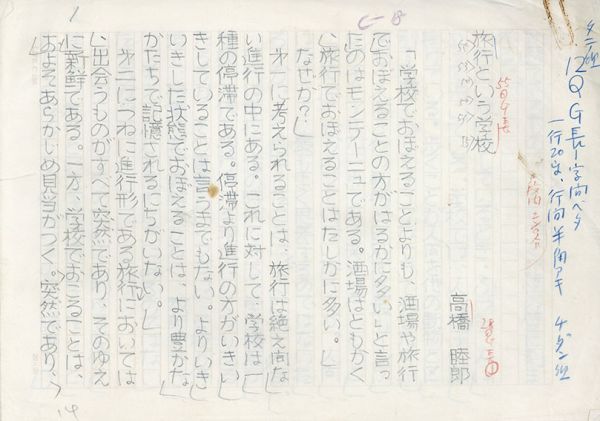 タテ組
12Q G長1字間ベタ
一行20字、行間半角アキ 4ダン組
旅行という学校
高橋 睦郎
「学校でおぼえることよりも、酒場や旅行
でおぼえることの方がはるかに多い」と言っ
たのはモンテーニュである。酒場はともかく
、旅行でおぼえることはたしかに多い。
なぜか?
第一に考えられることは、旅行は絶え間な
い進行の中にある。これに対して、学校は一
種の停滞である。停滞より進行の方がいきい
きしていることは言うまでもない。よりいき
いきした状態でおぼえることは、より豊かな
かたちで記憶されるにちがいない。
第二につねに進行形である旅行においては
、出会うものがすべて突然であり、そのゆえ
に新鮮である。一方、学校でおこることは、
おおよそあらかじめ見当がつく。突然であり、
1
14